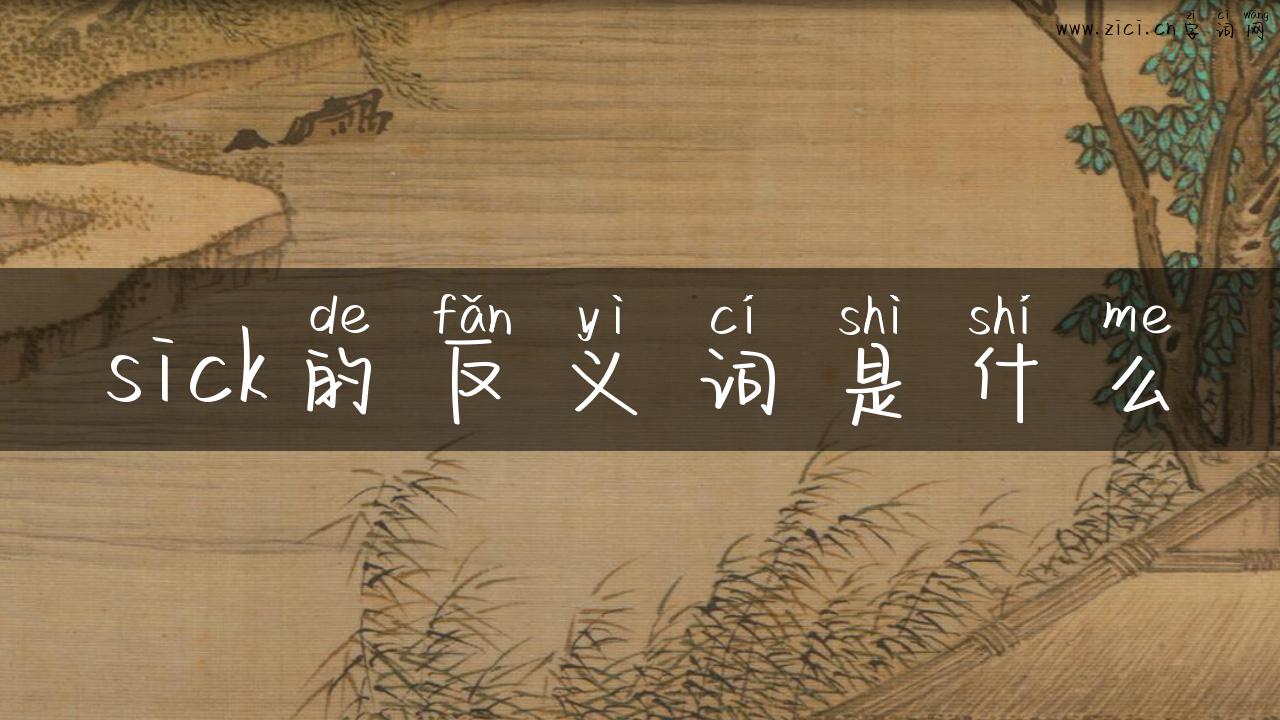 www.zici.cn zì cí wǎng
字词网
de fǎn yì cí shì shí me
sick的反义词是什么